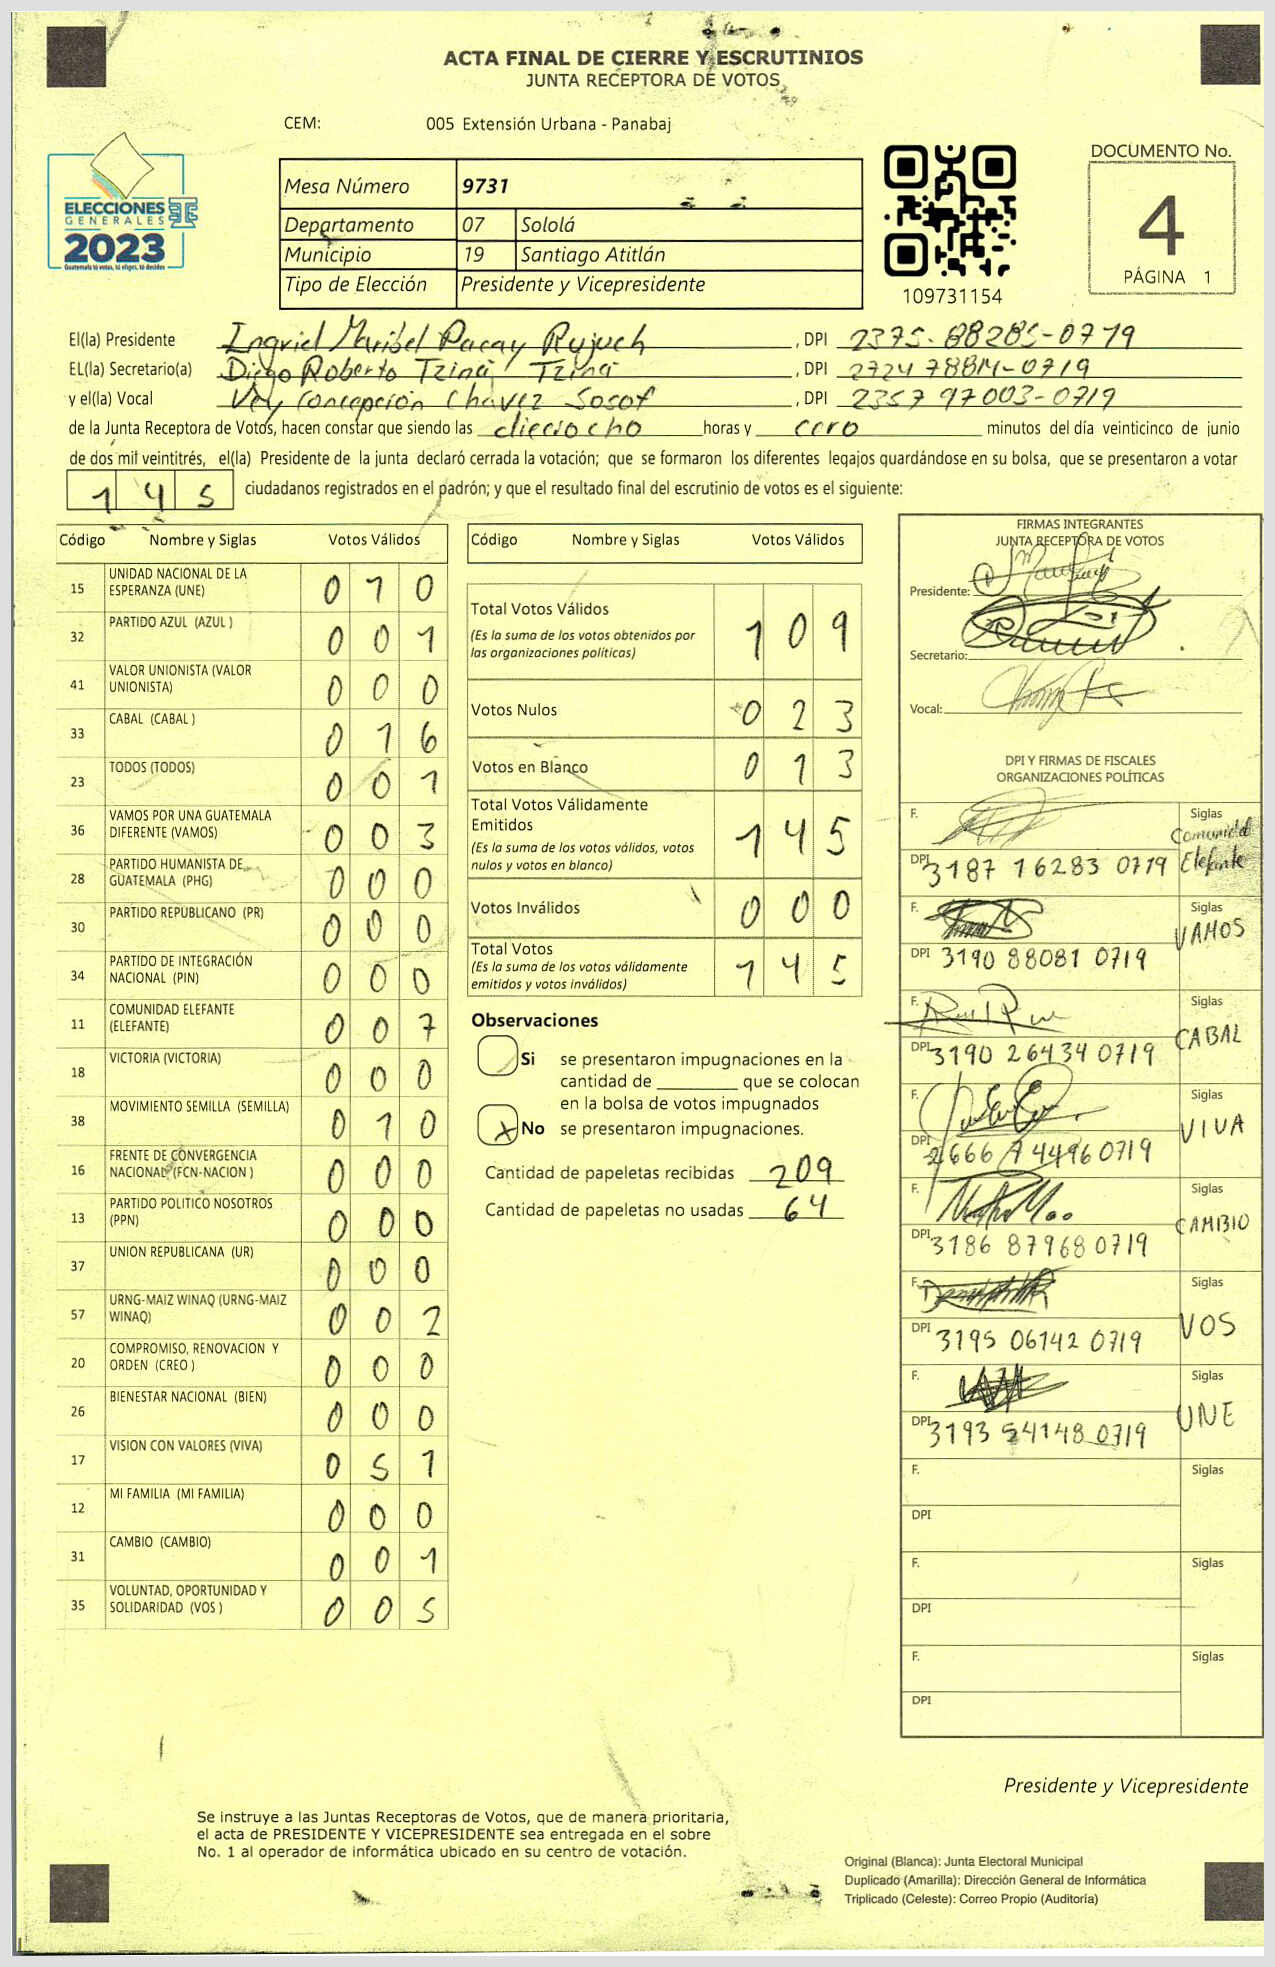 ACTA FINAL DE CIERRE Y ESCRUTINIOS
JUNTA RECEPTORA DE VOTOS
CEM: 005 Extensión Urbana - Panabaj
DOCUMENTO No.
4
PÁGINA 1
ELECCIONES
GENERALES
2023
Guatemala tú votas, tú eliges, tú decides
Mesa Número 9731
Departamento 07 Sololá
Municipio 19 Santiago Atitlán
Tipo de Elección Presidente y Vicepresidente
109731154
El(la) Presidente Ingrid Maribel Pacay Rujuch, DPI 2375-88285-0719
EL(la) Secretario(a) Diego Roberto Tziná Tziná, DPI 2724 0719
y el(la) Vocal Concepción Chávez Sosof, DPI 2357 97003-0719
de la Junta Receptora de Votos, hacen constar que siendo las dieciocho horas y cero minutos del día veinticinco de junio
de dos mil veintitrés, el(la) Presidente de la junta declaró cerrada la votación; que se formaron los diferentes legajos guardándose en su bolsa, que se presentaron a votar
145 ciudadanos registrados en el padrón; y que el resultado final del escrutinio de votos es el siguiente:
Código Nombre y Siglas Votos Válidos
15 UNIDAD NACIONAL DE LA ESPERANZA (UNE) 010
32 PARTIDO AZUL (AZUL ) 001
41 VALOR UNIONISTA (VALOR UNIONISTA) 000
33 CABAL (CABAL ) 016
23 TODOS (TODOS) 001
36 VAMOS POR UNA GUATEMALA DIFERENTE (VAMOS) 003
28 PARTIDO HUMANISTA DE GUATEMALA (PHG) 000
30 PARTIDO REPUBLICANO (PR) 000
34 PARTIDO DE INTEGRACIÓN NACIONAL (PIN) 000
11 COMUNIDAD ELEFANTE (ELEFANTE) 007
18 VICTORIA (VICTORIA) 000
38 MOVIMIENTO SEMILLA (SEMILLA) 010
16 FRENTE DE CONVERGENCIA NACIONAL (FCN-NACION ) 000
13 PARTIDO POLITICO NOSOTROS (PPN) 000
37 UNION REPUBLICANA (UR) 000
57 URNG-MAIZ WINAQ (URNG-MAIZ WINAQ) 002
20 COMPROMISO, RENOVACION Y ORDEN (CREO ) 000
26 BIENESTAR NACIONAL (BIEN) 000
17 VISION CON VALORES (VIVA) 051
12 MI FAMILIA (MI FAMILIA) 000
31 CAMBIO (CAMBIO) 001
35 VOLUNTAD, OPORTUNIDAD Y SOLIDARIDAD (VOS ) 005
Código Nombre y Siglas Votos Válidos
Total Votos Válidos 109
(Es la suma de los votos obtenidos por
las organizaciones políticas)
Votos Nulos 023
Votos en Blanco 013
Total Votos Válidamente
Emitidos 145
(Es la suma de los votos válidos, votos
nulos y votos en blanco)
Votos Inválidos 000
Total Votos 145
(Es la suma de los votos válidamente
emitidos y votos inválidos)
Observaciones
Si se presentaron impugnaciones en la
cantidad de ________ que se colocan
en la bolsa de votos impugnados
X No se presentaron impugnaciones.
Cantidad de papeletas recibidas 209
Cantidad de papeletas no usadas 64
FIRMAS INTEGRANTES
JUNTA RECEPTORA DE VOTOS
Presidente:
Secretario:
Vocal:
DPI Y FIRMAS DE FISCALES
ORGANIZACIONES POLÍTICAS
F. Siglas Comunidad Elefante
DPI 3187 16283 0719
F. Siglas VAMOS
DPI 3190 88081 0719
F. Siglas CABAL
DPI 3190 26434 0719
F. Siglas VIVA
DPI 2666 44960719
F. Siglas CAMBIO
DPI 3186 87968 0719
F. Siglas VOS
DPI 3195 06142 0719
F. Siglas UNE
DPI 3193 54148 0719
F. Siglas
DPI
F. Siglas
DPI
F. Siglas
DPI
Presidente y Vicepresidente
Se instruye a las Juntas Receptoras de Votos, que de manera prioritaria,
el acta de PRESIDENTE Y VICEPRESIDENTE sea entregada en el sobre
No. 1 al operador de informática ubicado en su centro de votación.
Original (Blanca): Junta Electoral Municipal
Duplicado (Amarilla): Dirección General de Informática
Triplicado (Celeste): Correo Propio (Auditoría)